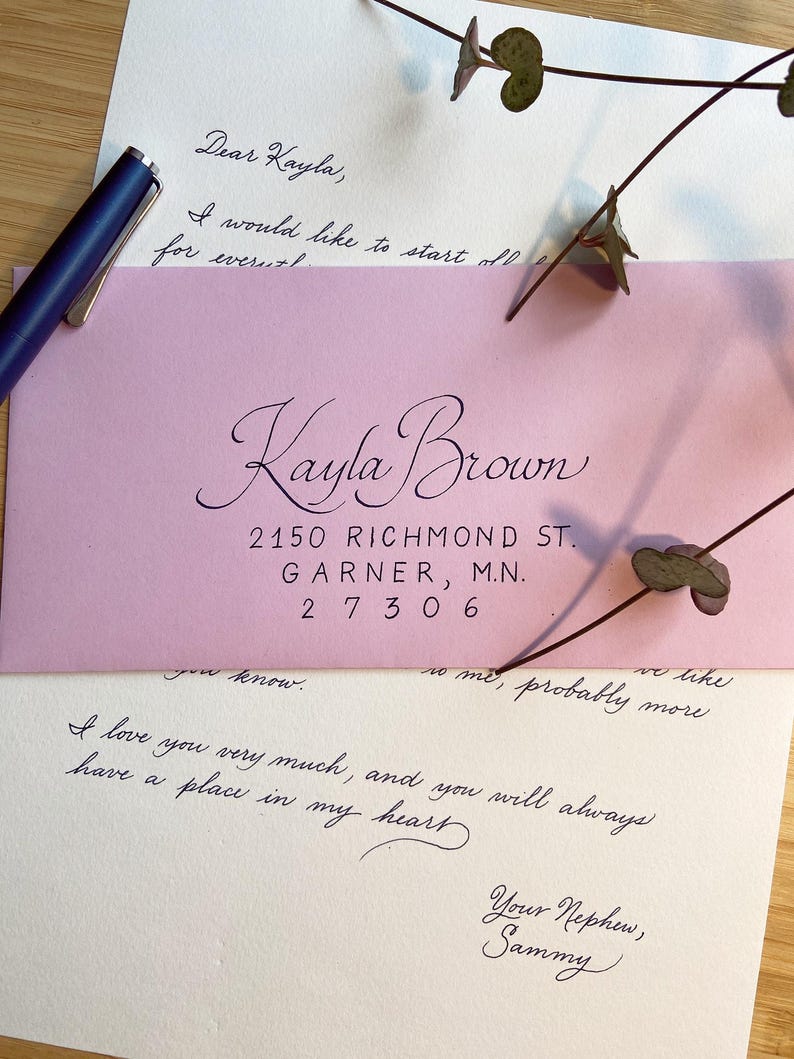 Dear Kayla,
I would like to start off
for
Kayla Brown
2150 RICHMOND ST.
GARNER, M.N.
27306
you know. to me, probably more
like
I love you very much, and you will always
have a place in my heart
Your Nephew,
Sammy